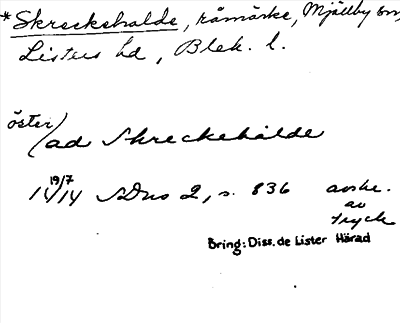 *Skreckehalde, råmärke, Mjällby sn,
Listers hd, Blek. l.
öster/ad Skreckehalde
19/7
14/14 SDns 2, s. 836 avskr.
av
tryck
Bring: Diss. de Lister Härad